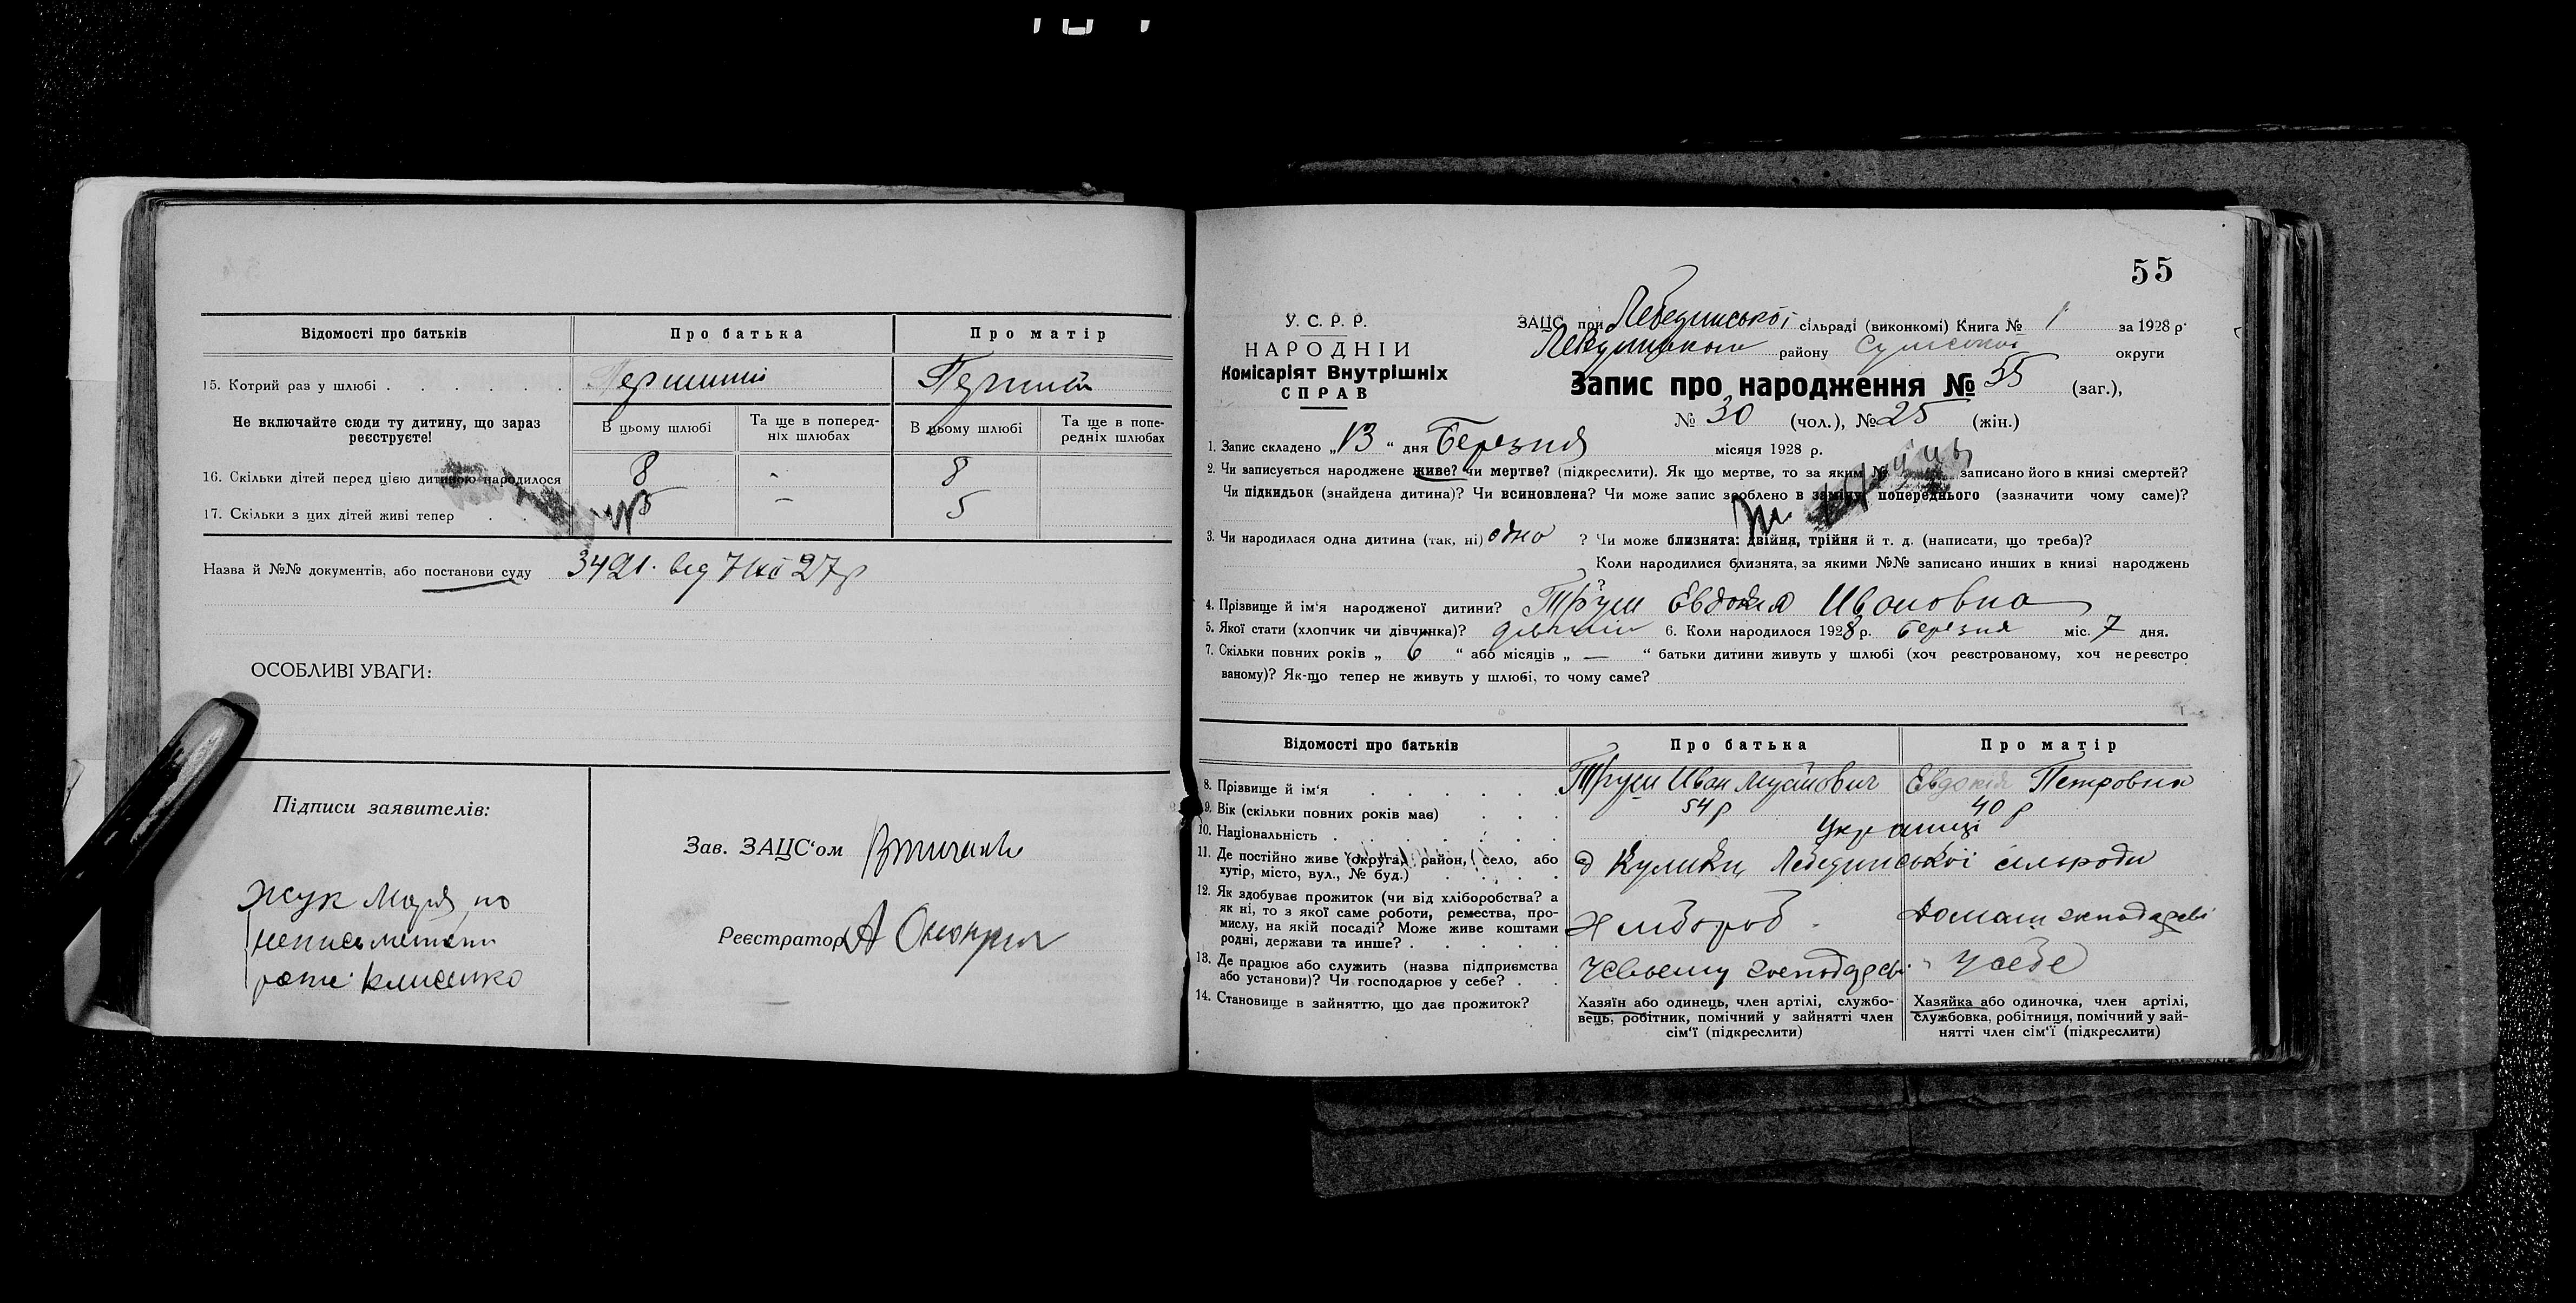 Відомості про батьків
Про батька
Про матір
15. Котрий раз у шлюбі . . . . . .
Перший
Перший
Не включайте сюди ту дитину, що зараз реєструєте!
В цьому шлюбі
Та ще в поперед-
ніх шлюбах
В цьому шлюбі
Та ще в попе-
редніх шлюбах
16. Скільки дітей перед цією дитиною народилося
8 - 8
17. Скільки з цих дітей живі тепер . .
5 — 5
Назва й №№ документів, або постанови суду 3421. від 27р
ОСОБЛИВІ УВАГИ:
Підписи заявителів:
Жук Мария по
неписьменности
Зав. ЗАЦС'ом
Реєстратор
55
У. С. Р. Р.
НАРОДНІЙ
Комісаріят Внутрішніх
СПРАВ
ЗАЦС при Лебединської сільраді (виконкомі) Книга № 1 за 1928 р.
району Сумської округи
Запис про народження № 55 (заг.),
№ 30 (чол.), № 25 (жін.)
1. Запис складено „13" дня Березня місяця 1928 р.
2. Чи записується народжене живе? чи мертве? (підкреслити). Як що мертве, то за яким № записано його в книзі смертей?
Чи підкидьок (знайдена дитина)? Чи всиновлена? Чи може запис зроблено в заміну попереднього (зазначити чому саме)?
3. Чи народилася одна дитина (так, ні) одно ? Чи може близнята: двійня, трійня й т. д. (написати, що треба)?
Коли народилися близнята, за якими №№ записано инших в книзі народжень
?
4. Прізвище й ім'я народженої дитини? Труш Евдокия Ивановна
5. Якої стати (хлопчик чи дівчинка)? 6. Коли народилося 1928 р. березня міс. 7 дня.
7. Скільки повних років „ 6 " або місяців „ — " батьки дитини живуть у шлюбі (хоч реєстрованому, хоч нереєстро
ваному)? Як-що тепер не живуть у шлюбі, то чому саме?
Відомості про батьків
Про батька
Про матір
8. Прізвище й ім'я . . . . . .
Труш Иван
Евдокия Петровна
9. Вік (скільки повних років має) . . .
54 р
40 р
10. Національність . . . . . .
Українці
11. Де постійно живе (округа, район, село, або
хутір, місто, вул., № буд.) . . . .
Кулики Лебединської сільради
12. Як здобуває прожиток (чи від хліборобства? а
як ні, то з якої саме роботи, ремества, про-
мислу, на якій посаді? Може живе коштами
родні, держави та инше? . . . . .
Хлібороб
13. Де працює або служить (назва підприємства
або установи)? Чи господарює у себе? . .
у себе
14. Становище в зайняттю, що дає прожиток?
Хазяїн або одинець, член артілі, службо-
вець, робітник, помічний у зайнятті член
сім'ї (підкреслити)
Хазяйка або одиночка, член артілі,
службовка, робітниця, помічний у зай-
нятті член сім'ї (підкреслити)